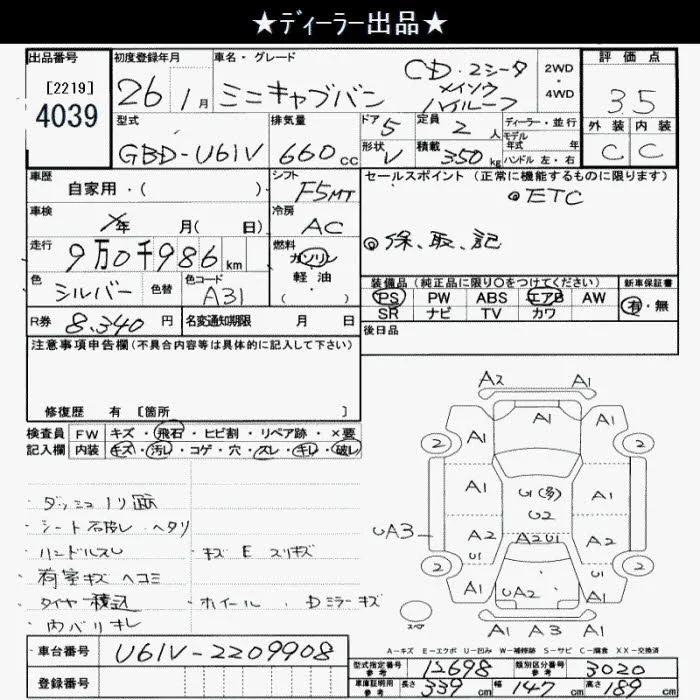 ★ディーラー出品★
出品番号
[2219]
4039
初度登録年月
26 1月
車名・グレード
ミニキャブバン
CD. 2シータ
ハイルーフ
2WD
4WD
評価点
3.5
外装 内装
C C
型式
GBD-U61V
排気量
660 cc
ドア 5
形状 V
定員 2 人
積載 350 kg
ディーラー・並行
モデル
年式 年
ハンドル 左・右
車歴
自家用・( )
車検
年 月( 日)
走行
9万0千986 km
色
シルバー
色替
色コード
A31
シフト
F5MT
冷房
AC
燃料
ガソリン
軽・油
セールスポイント (正常に機能するものに限ります)
◎ETC
◎保、取、記
装備品 (純正品に限り○をつけてください)
PS PW ABS エアB AW
SR ナビ TV カワ
新車保証書
有・無
R券 8.340 円
名変通知期限 月 日
後日品
注意事項申告欄 (不具合内容等は具体的に記入して下さい)
修復歴 有 [箇所 ]
検査員 FW キズ・飛石・ヒビ割・リペア跡・×要
記入欄 内装 キズ・汚レ・コゲ・穴・スレ・キレ・破レ
・ダッシュノリ跡
・シート破レ ヘタリ
・ハンドルスレ ・キズ E スリキズ
・荷室キズ ヘコミ
・タイヤ積込 ・ホイール. Dミラーキズ
・内バリキレ
A2 A1
A1
A1 A1
2 2
A1 U1(多) A1
U2
UA3
A2 A2U1 A2
U1 U1
2 2
A1 UA2 A1
スペア
A1 A3 A1
A-キズ E-エクボ U-凹み W-補修跡 S-サビ C-腐食 XX-交換済
車台番号 U61V-2209908
登録番号
型式指定番号 参考 12698 類別区分番号 参考 3020
車庫証明用 参考 長さ 339 cm 幅 147 cm 高さ 189 cm